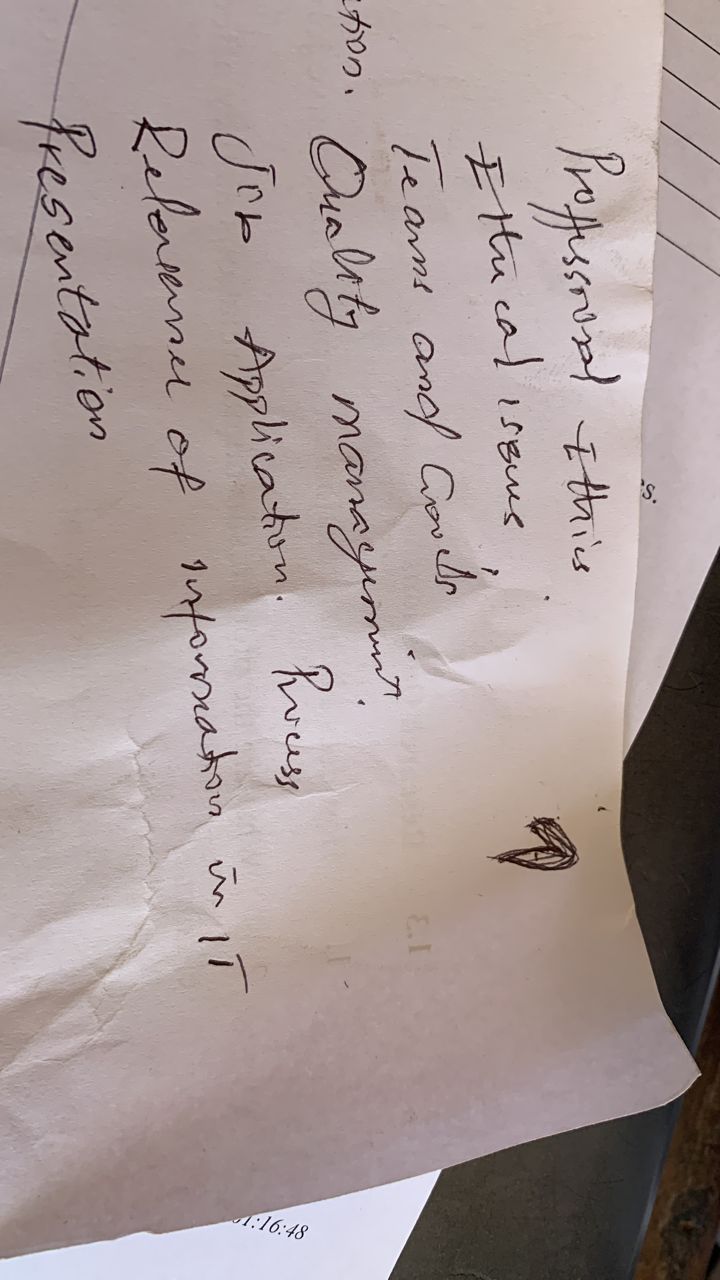 s.
Proffessional Ethics
Ethical issues
Teams and Goods
ction. Quality management.
Job Application. Process
of information in IT
Presentation
1.3
1:16:48